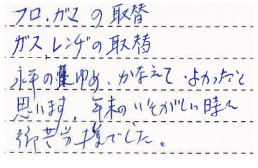 フロ.ガマの取替
ガス,レンヂの取替
永年のゆめ、かなえて、よかったと
思います。年末のいそがしい時に
御苦労様でした。